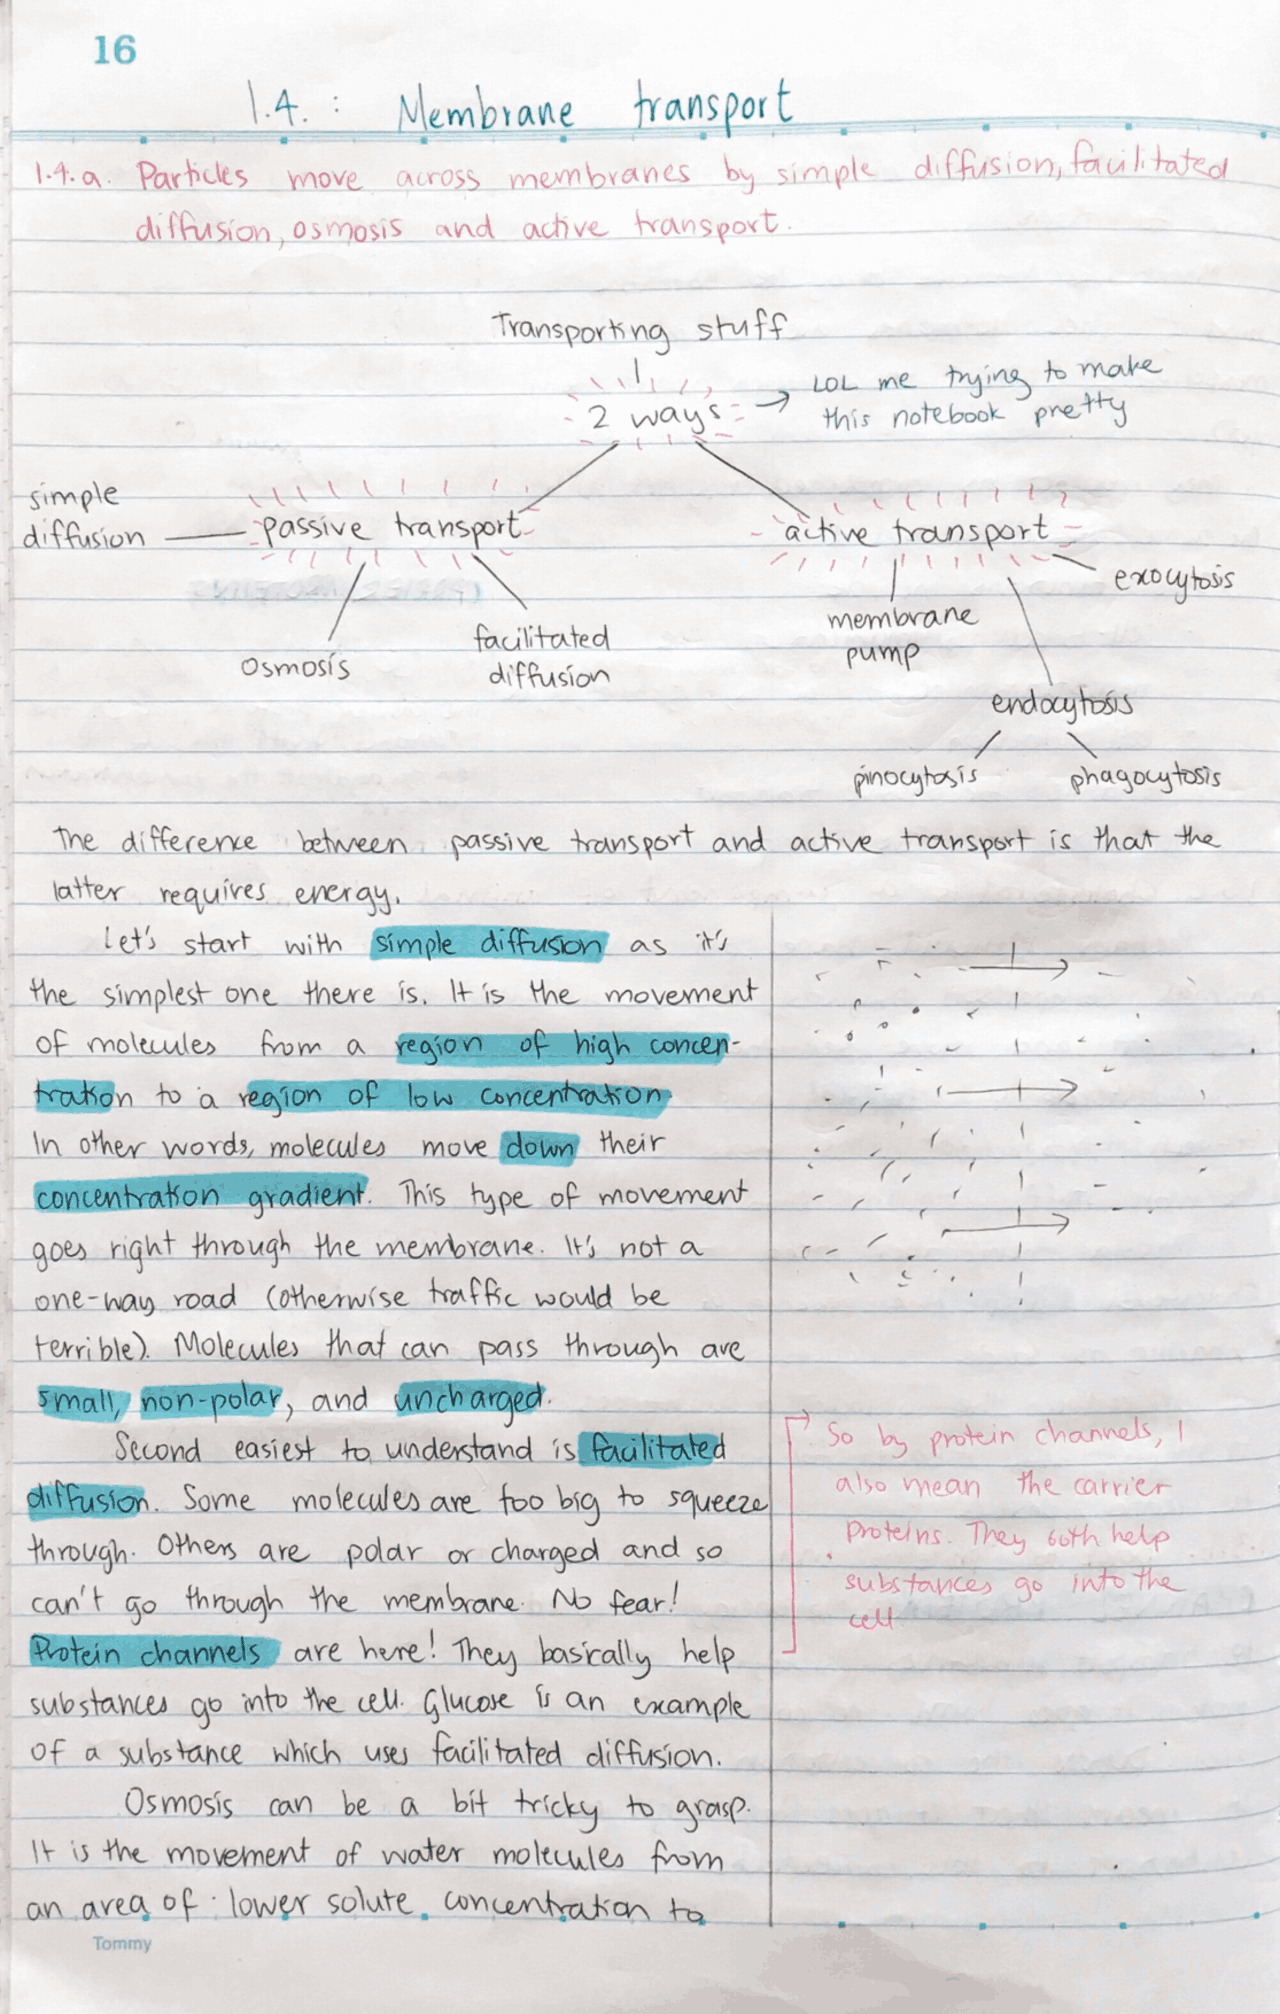 16
1.4. : Membrane transport
1.4.a. Particles move across membranes by simple diffusion, facilitated
diffusion, osmosis and active transport.
Transporting stuff
2 ways → LOL me trying to make
this notebook pretty
simple
diffusion
passive transport
active transport
exocytosis
osmosis
facilitated
diffusion
membrane
pump
endocytosis
pinocytosis
phagocytosis
The difference between passive transport and active transport is that the
latter requires energy.
Let's start with simple diffusion as it's
the simplest one there is. It is the movement
of molecules from a region of high concen-
tration to a region of low concentration.
In other words, molecules move down their
concentration gradient. This type of movement
goes right through the membrane. It's not a
one-way road (otherwise traffic would be
terrible). Molecules that can pass through are
small, non-polar, and uncharged.
Second easiest to understand is facilitated
diffusion. Some molecules are too big to squeeze
through. Others are polar or charged and so
can't go through the membrane. No fear!
Protein channels are here! They basically help
substances go into the cell. Glucose is an example
of a substance which uses facilitated diffusion.
Osmosis can be a bit tricky to grasp.
It is the movement of water molecules from
an area of lower solute concentration to
So by protein channels, I
also mean the carrier
proteins. They both help
substances go into the
cell
Tommy